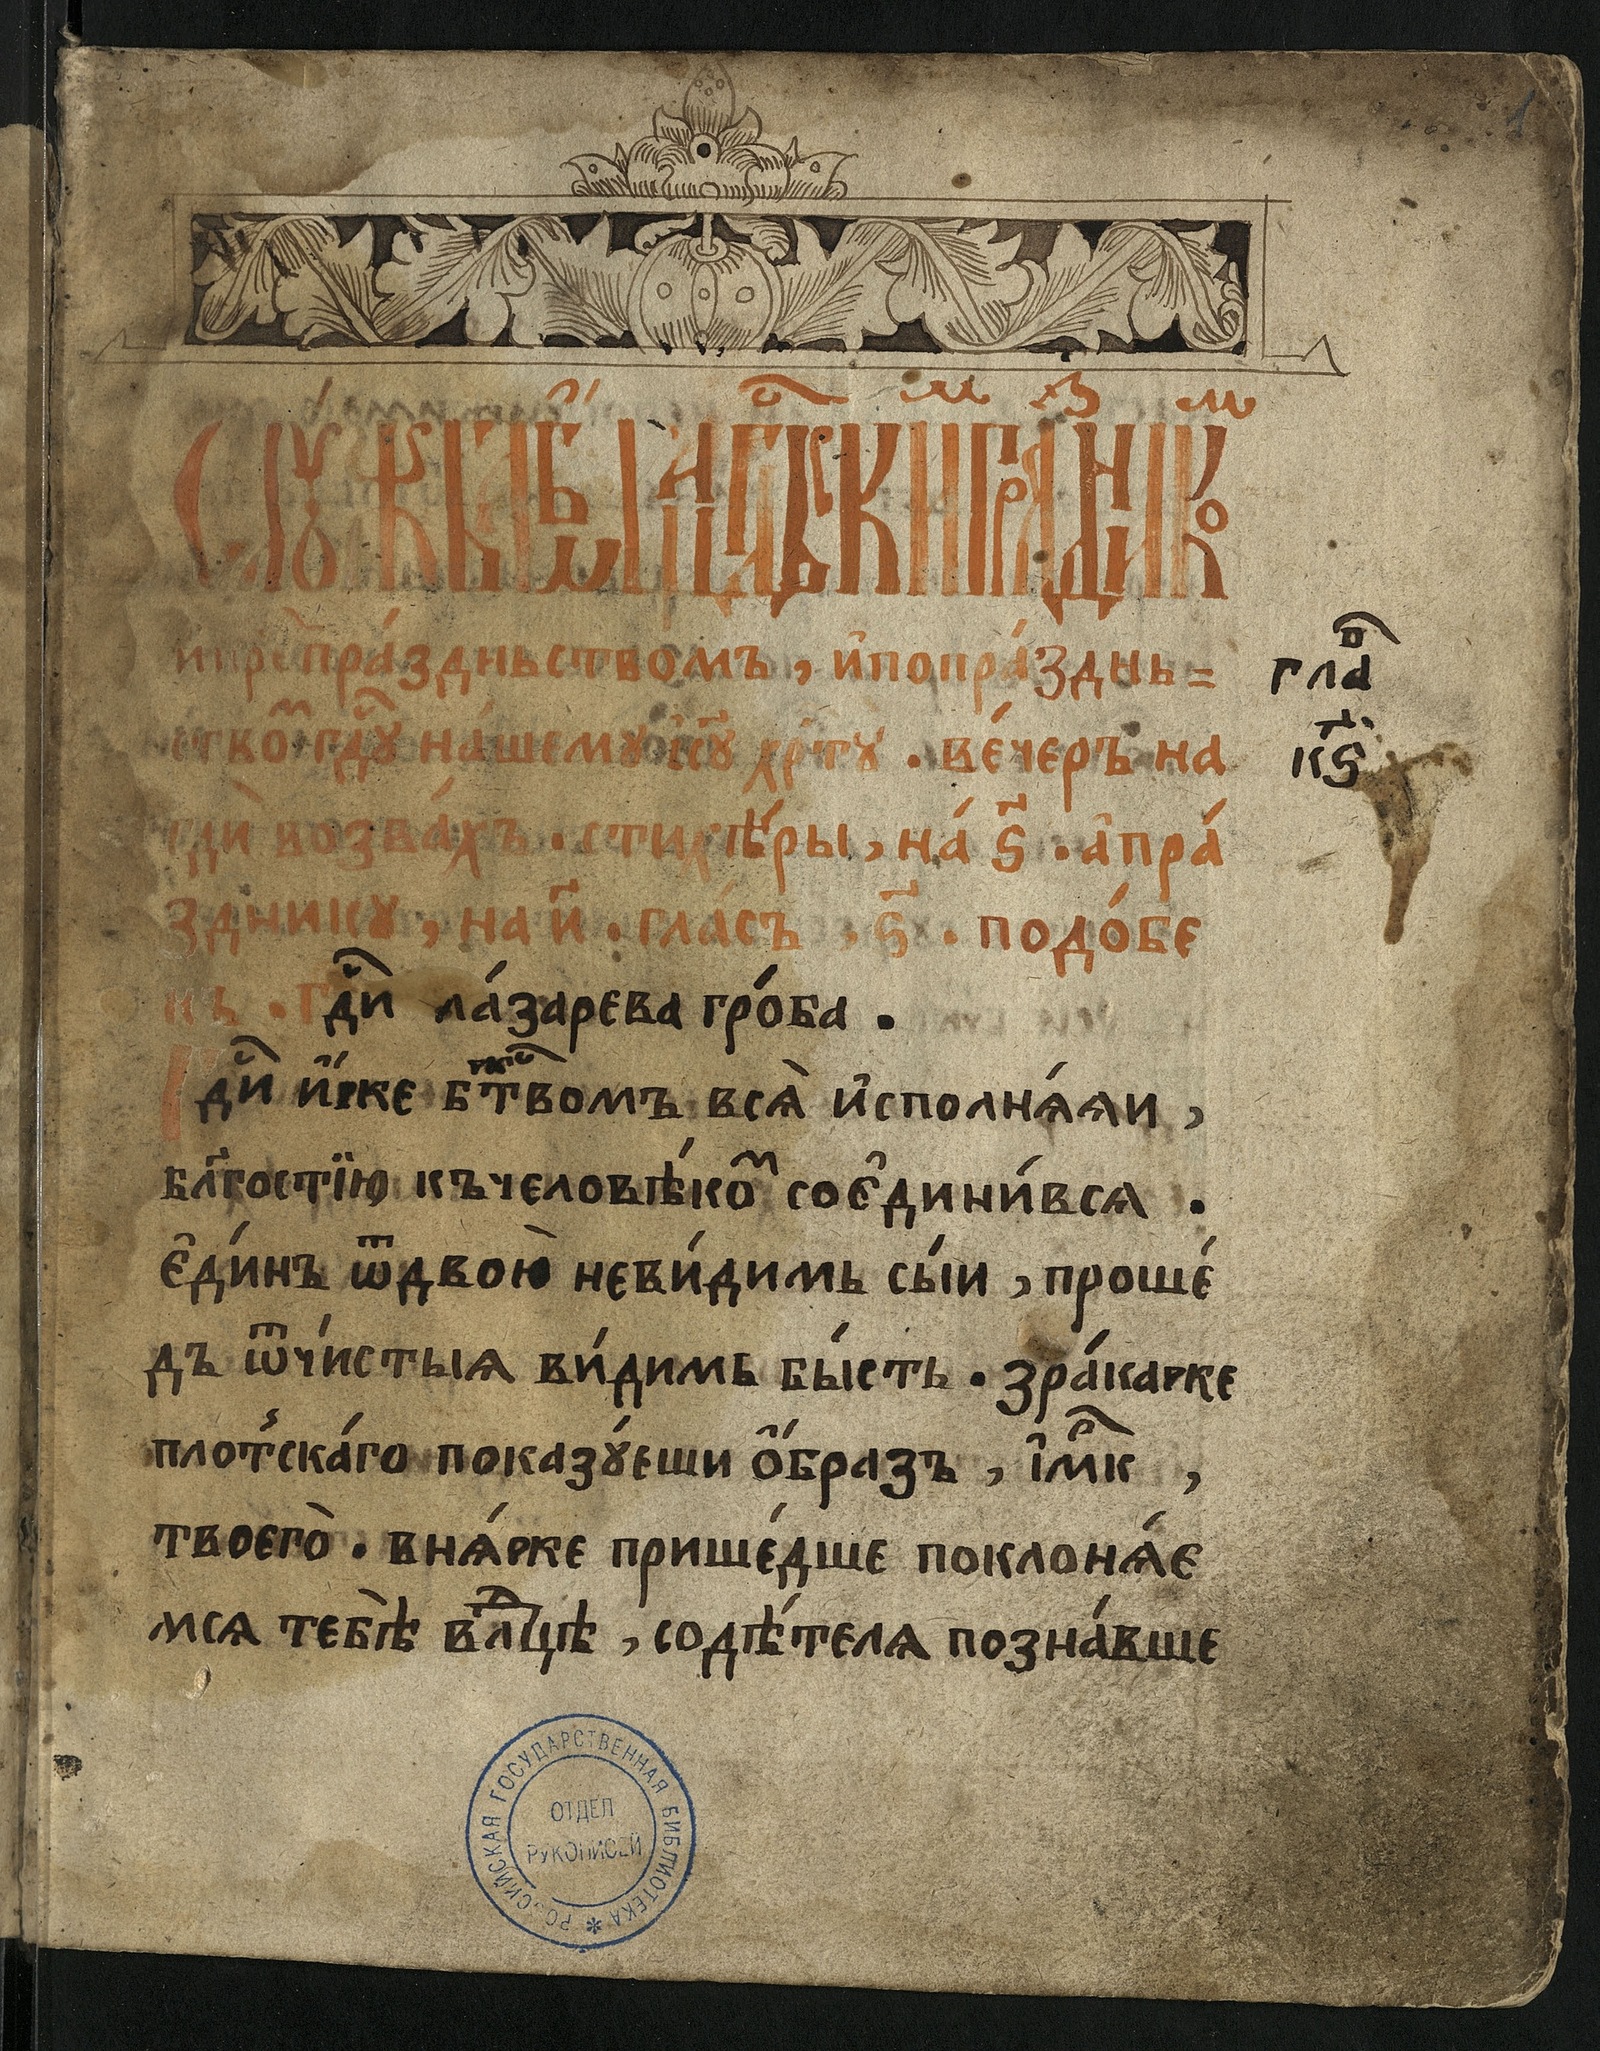 и҆пре́пра́здньствомъ, и҆попра́зднь=
стко́м гдⷭ҇ꙋ на́шемꙋ і҆с҃ꙋ хрⷭ҇тꙋ̀ . ве́черъ на
гдⷭ҇и возва́хъ . стихѣ́ры, на́ ѕ҃ . а҆пра́
здникꙋ, на и҃ . гла́съ . ѕ҃ . подо́бе
нъ . Гдⷭ҇и ла́зарева гро́ба .
Гдⷭ҇и и҆́же бжⷭ҇твомъ всѧ̀ и҆сполнѧ́ѧи,
бл҃гостїю къчеловѣ́комⷨ сое҆дини́всѧ .
є҆ди́нъ ѿдвою̀ неви́димь сы́и, проше́
дъ ѿчи́стыѧ ви́димь бы́сть . зра́каже
плот́ска́го показꙋ́еши ѻ҆́бразъ, і҆мⷬ҇к ,
твоего̀ . внѧ́же прише́дше поклонѧ́є
мсѧ тебѣ̀ влⷣцѣ, содѣ́телѧ позна́вше
глаⷡ҇
к҃ѕ
1
РОССИЙСКАЯ ГОСУДАРСТВЕННАЯ БИБЛИОТЕКА
ОТДЕЛ
РУКОПИСЕЙ